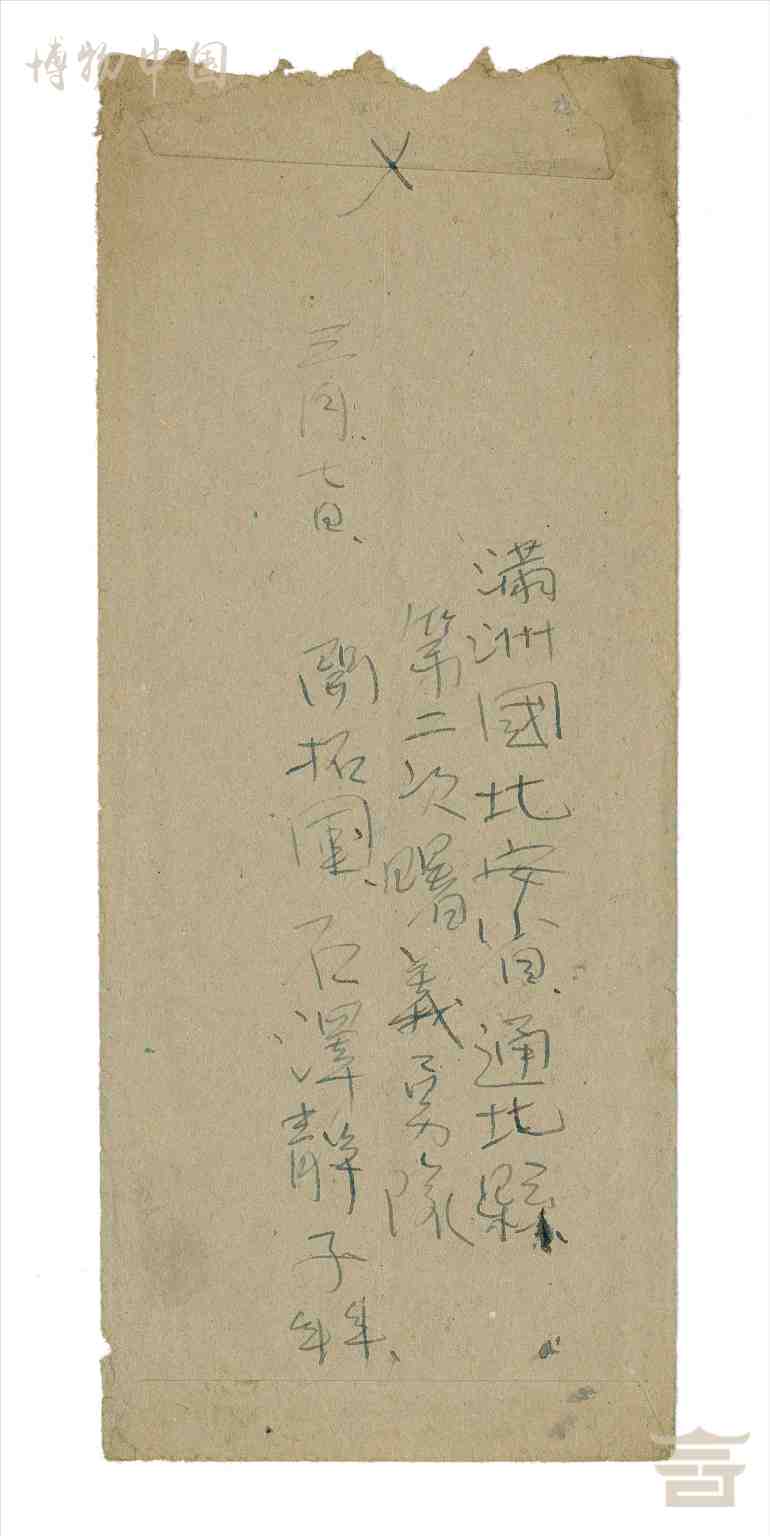 博物中国
滿洲國北安省通北縣
第二次曙義勇隊
開拓團 石澤靜子
三月七日